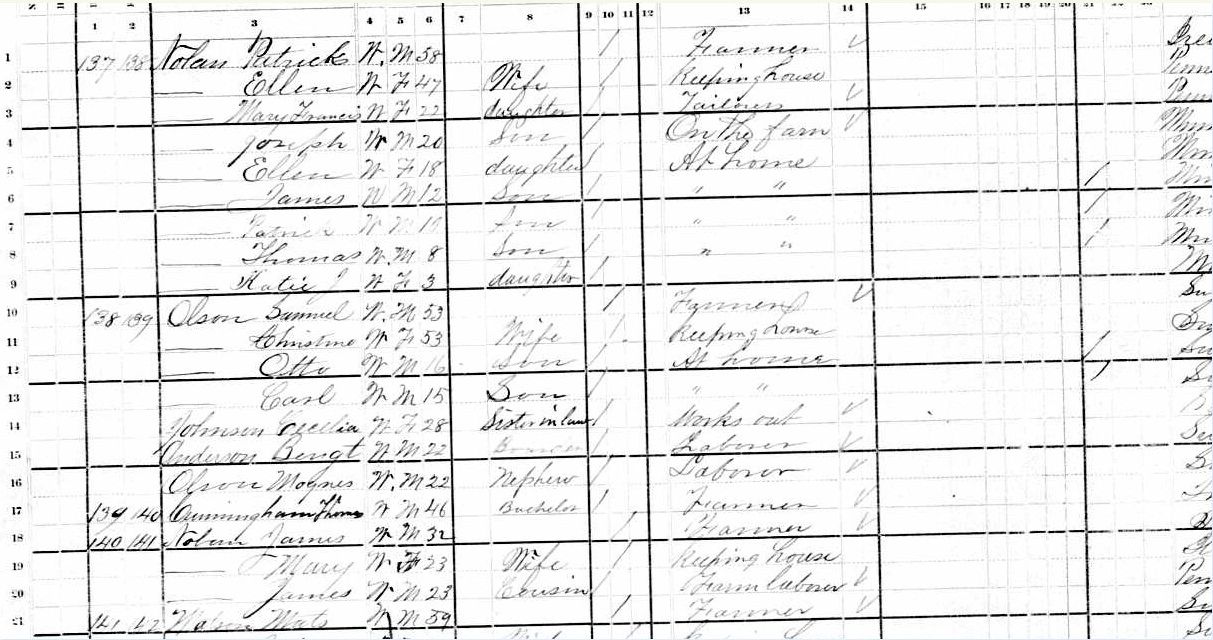 1 2 3 4 5 6 7 8 9 10 11 12 13 14 15 16 17 18 19 20 21
1 137 138 Nolan Patrick W. M 58 / Farmer ✓
2 — Ellen W F 47 Wife / Keeping house
3 — Mary Francis W F 22 daughter / Tailoress ✓
4 — Joseph W M 20 Son / On the farm ✓
5 — Ellen W F 18 daughter / At home
6 — James W M 12 Son / " " /
7 — W M Son / " " /
8 — Thomas W. M 8 Son / " " /
9 — Katie J W F 3 daughter /
10 138 139 Olson Samuel W. M 53 / Farmer ✓
11 — Christine W F 53 Wife / Keeping house
12 — Otto W M 16 Son / At home /
13 — Carl W M 15 Son / " " /
14 Johnson Cecelia W F 28 Sister in law / Works out ✓
15 Anderson Bengt W M 22 / Laborer ✓
16 Olson Mognes W. M 22 Nephew / Laborer ✓
17 139 140 Cunningham Thomas W M 46 Bachelor / Farmer ✓
18 140 141 Nolan James W M 32 / Farmer ✓
19 — Mary W F 23 Wife / Keeping house
20 — James W M 23 Cousin / Farm laborer ✓
21 141 142 Mats W M 59 / Farmer ✓